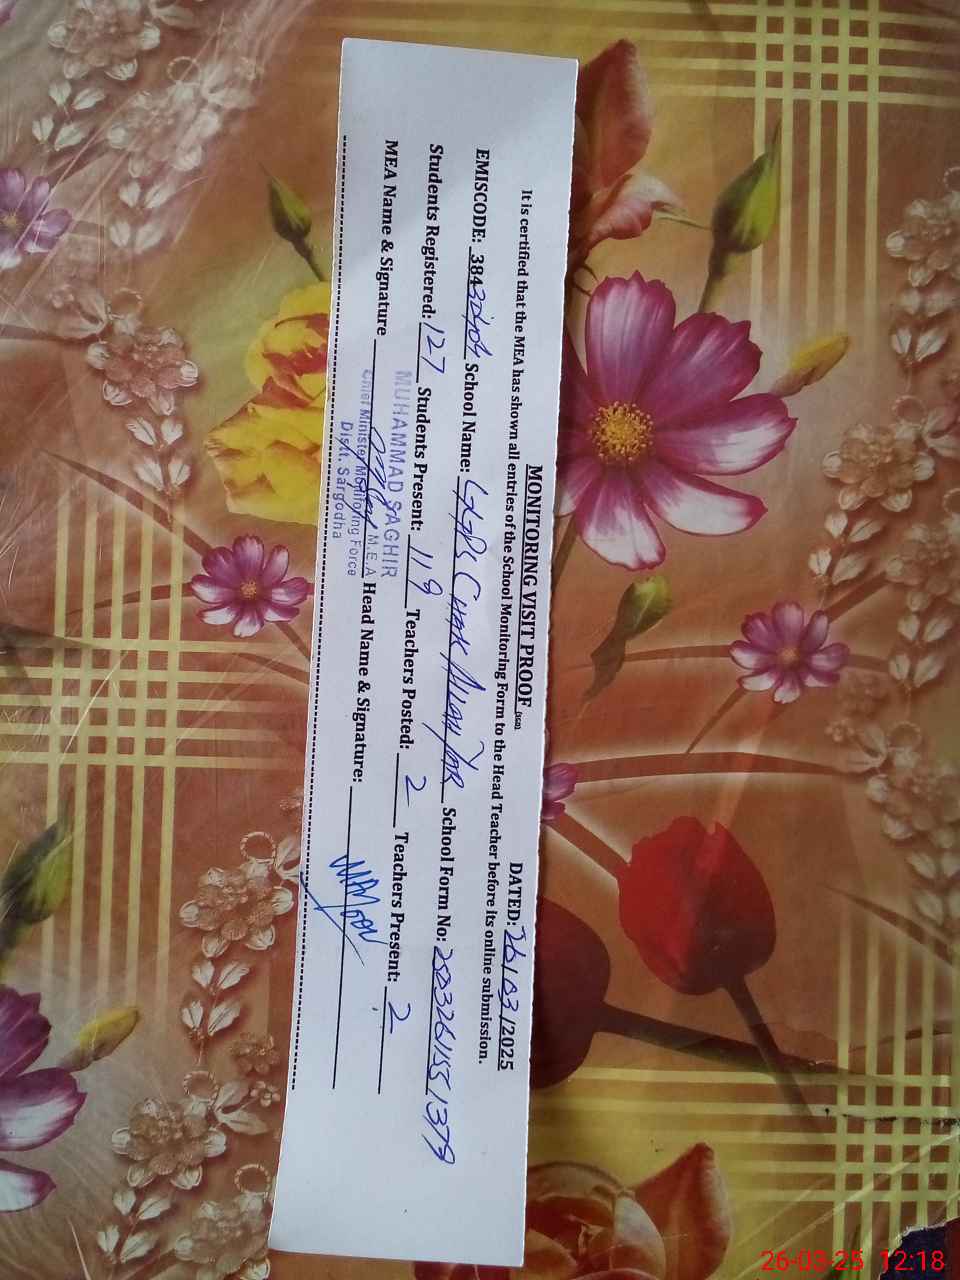 MONITORING VISIT PROOF (SGD)
DATED: 26/03/2025
It is certified that the MEA has shown all entries of the School Monitoring Form to the Head Teacher before its online submission.
EMISCODE: 384 School Name: GGPS CHAK ALLAH YAR School Form No:
Students Registered: 127 Students Present: 119 Teachers Posted: 2 Teachers Present: 2
MEA Name & Signature Head Name & Signature:
MUHAMMAD SAGHIR
M.E.A
Chief Minister Monitoring Force
Distt. Sargodha
26-03-25 12:18